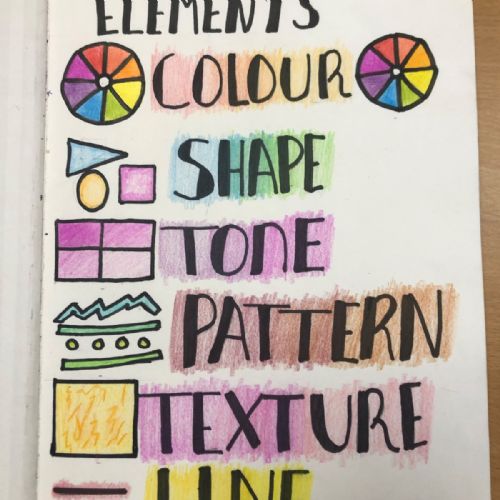 ELEMENTS
COLOUR
SHAPE
TONE
PATTERN
TEXTURE
LINE